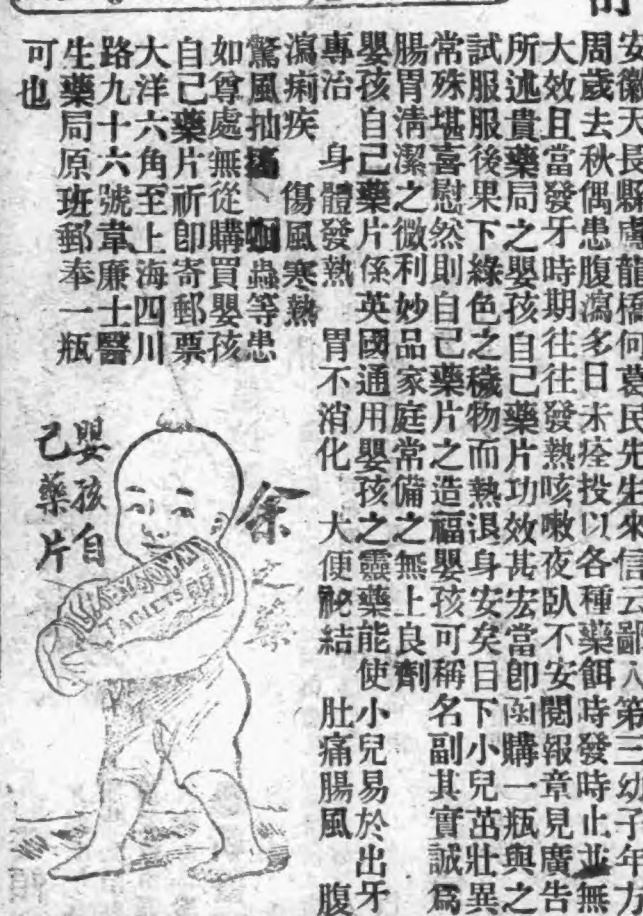 安徽天長縣盧龍橋何葛民先生來信云鄙人第三幼子年方
周歲去秋偶患腹瀉多日未痊投以各種藥餌時發時止並無
大效且當發牙時期往往發熱咳嗽夜臥不安閱報章見廣告
所述貴藥局之嬰孩自己藥片功效甚宏當即函購一瓶與之
試服服後果下綠色之穢物而熱退身安矣目下小兒茁壯異
常殊堪喜慰然則自己藥片之造福嬰孩可稱名副其實誠爲
腸胃清潔之微利妙品家庭常備之無上良劑
嬰孩自己藥片係英國通用嬰孩之靈藥能使小兒易於出牙
專治 身體發熱 胃不消化 大便祕結 肚痛腸風 腹
瀉痢疾 傷風寒熱
驚風抽搐、蛔蟲等患
如尊處無從購買嬰孩
自己藥片祈卽寄郵票
大洋六角至上海四川
路九十六號韋廉士醫
生藥局原班郵奉一瓶
可也
余之藥
BABY'S OWN
TABLETS
嬰孩自
己藥片